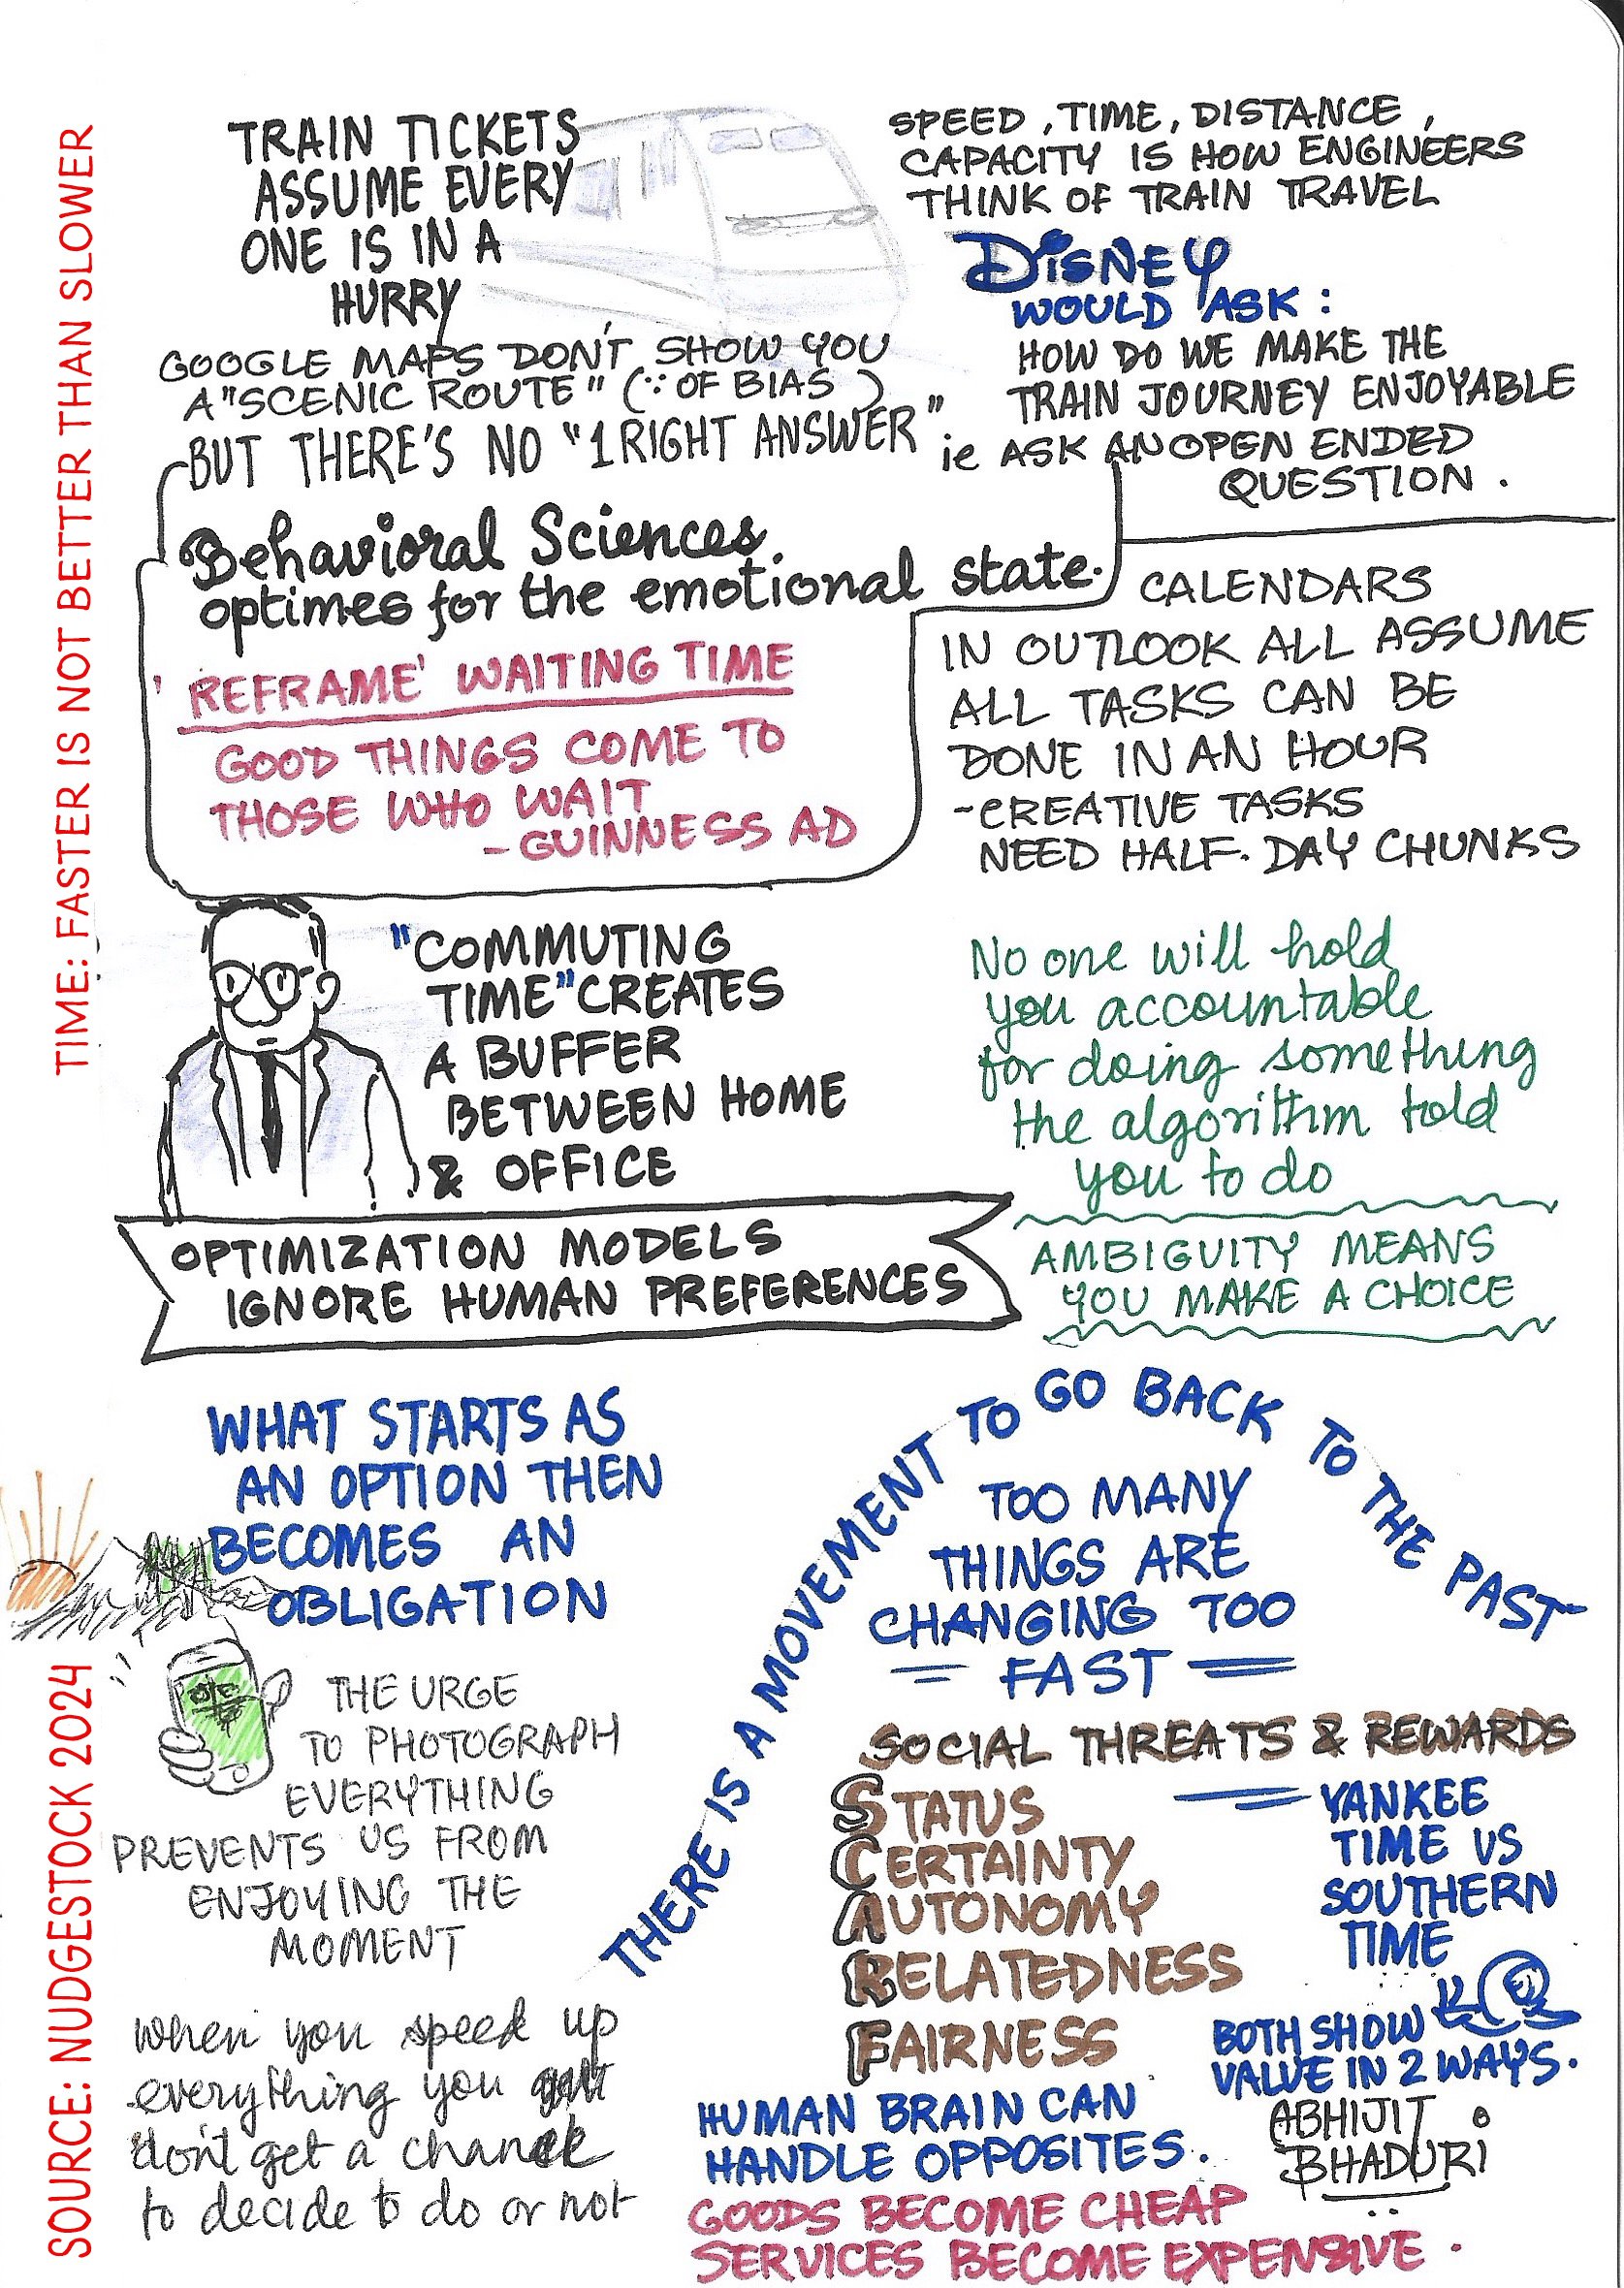 TIME: FASTER IS NOT BETTER THAN SLOWER
TRAIN TICKETS
ASSUME EVERY
ONE IS IN A
HURRY
GOOGLE MAPS DON'T SHOW YOU
A "SCENIC ROUTE" (∵ OF BIAS)
BUT THERE'S NO "1 RIGHT ANSWER"
SPEED, TIME, DISTANCE,
CAPACITY IS HOW ENGINEERS
THINK OF TRAIN TRAVEL
DISNEY
WOULD ASK:
HOW DO WE MAKE THE
TRAIN JOURNEY ENJOYABLE
ie ASK AN OPEN ENDED
QUESTION.
Behavioral Sciences
optimes for the emotional state.
'REFRAME' WAITING TIME
GOOD THINGS COME TO
THOSE WHO WAIT
- GUINNESS AD
CALENDARS
IN OUTLOOK ALL ASSUME
ALL TASKS CAN BE
DONE IN AN HOUR
- CREATIVE TASKS
NEED HALF-DAY CHUNKS
"COMMUTING
TIME" CREATES
A BUFFER
BETWEEN HOME
& OFFICE
OPTIMIZATION MODELS
IGNORE HUMAN PREFERENCES
No one will hold
you accountable
for doing something
the algorithm told
you to do
AMBIGUITY MEANS
YOU MAKE A CHOICE
WHAT STARTS AS
AN OPTION THEN
BECOMES AN
OBLIGATION
THE URGE
TO PHOTOGRAPH
EVERYTHING
PREVENTS US FROM
ENJOYING THE
MOMENT
when you speed up
everything you
don't get a chance
to decide to do or not
THERE IS A MOVEMENT TO GO BACK TO THE PAST
TOO MANY
THINGS ARE
CHANGING TOO
FAST
SOCIAL THREATS & REWARDS
STATUS
CERTAINTY
AUTONOMY
RELATEDNESS
FAIRNESS
YANKEE
TIME VS
SOUTHERN
TIME
BOTH SHOW
VALUE IN 2 WAYS.
HUMAN BRAIN CAN
HANDLE OPPOSITES.
ABHIJIT
BHADURI
GOODS BECOME CHEAP
SERVICES BECOME EXPENSIVE.
SOURCE: NUDGESTOCK 2024